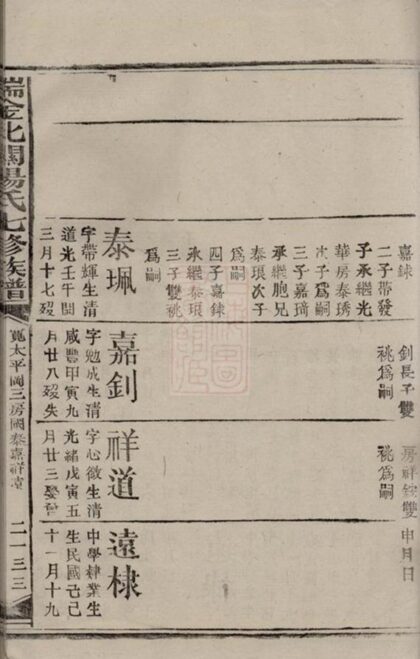 嘉錸
二子帶發
子承繼光
華房泰琇
次子爲嗣
三子嘉琦
承繼胞兄
泰琅次子
爲嗣
四子嘉錸
承繼泰琅
三子雙祧
爲嗣
泰珮
字帶輝生清
道光壬午閏
三月十七歿
釗長子雙
祧爲嗣
嘉釗
字勉成生清
咸豐甲寅九
月廿八歿失
房祥雙
祧爲嗣
祥道
字心微生清
光緒戊寅五
月廿三娶曾
申月日
遠棣
中學肄業生
生民國己巳
十一月十九
瑞金北關楊氏七修族譜
寬太平岡三房國泰嘉祥遠
二一三三